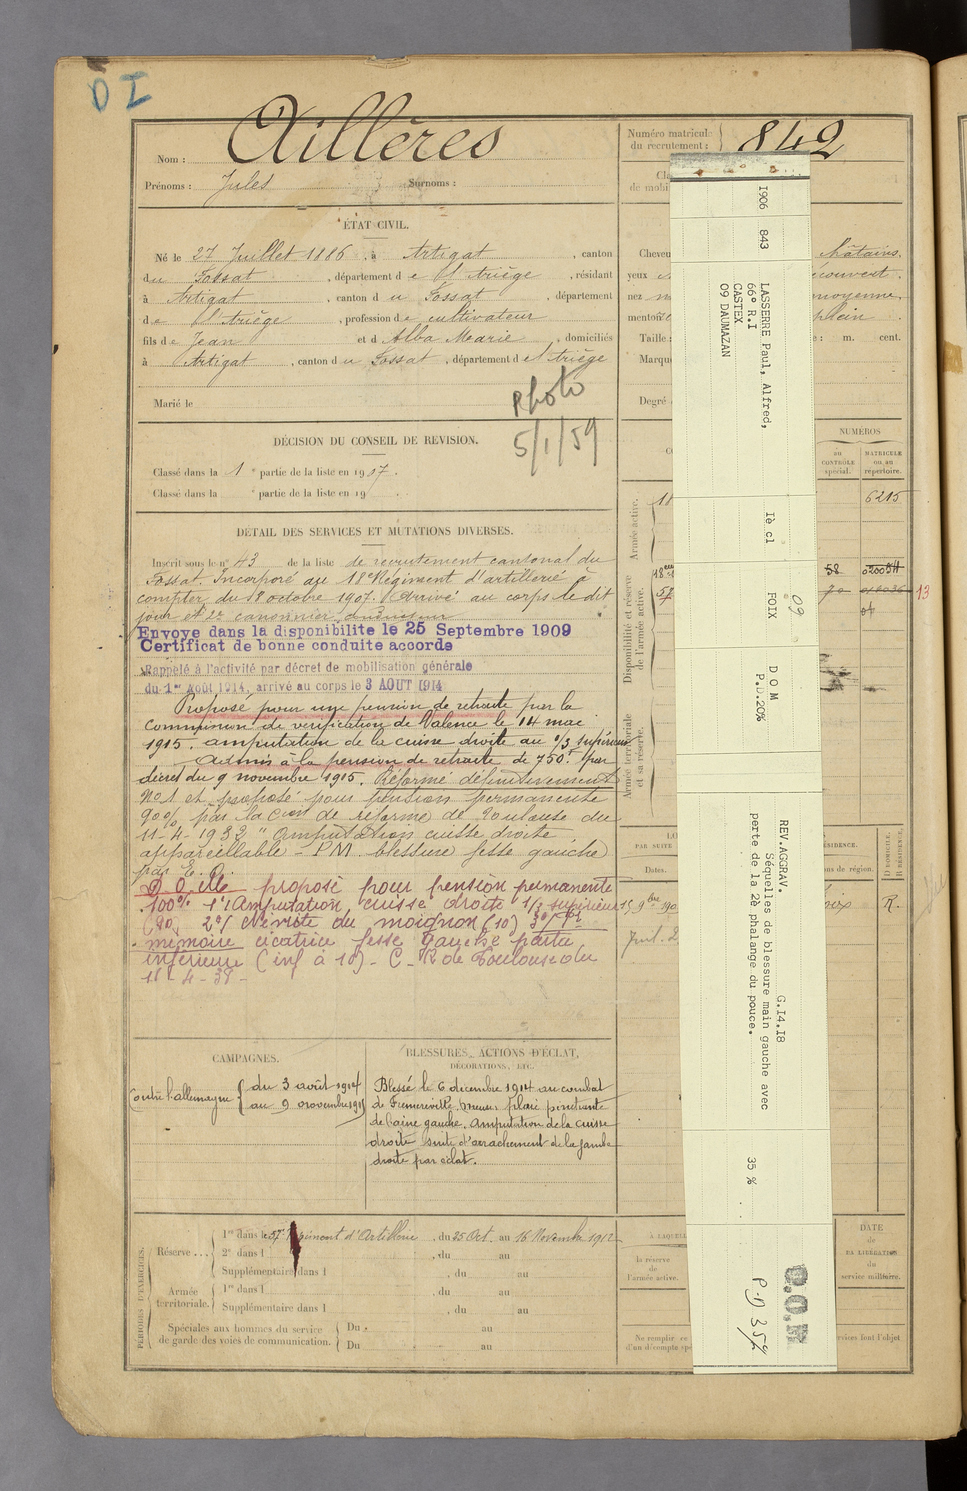 D I
Nom : Xillères
Prénoms : Jules Surnoms :
Numéro matricule du recrutement : 842
ÉTAT CIVIL.
Né le 27 Juillet 1886, à Artigat, canton
du Fossat, département de l'Ariège, résidant
à Artigat, canton du Fossat, département
de l'Ariège, profession de cultivateur
fils de Jean et d Alba Marie, domiciliés
à Artigat, canton du Fossat, département de l'Ariège
Marié le
Photo
5/1/59
DÉCISION DU CONSEIL DE RÉVISION.
Classé dans la 1e partie de la liste en 1907.
Classé dans la e partie de la liste en 19 .
DÉTAIL DES SERVICES ET MUTATIONS DIVERSES.
Inscrit sous le n° 43 de la liste de recrutement cantonal du
Fossat. Incorporé au 18e Régiment d'artillerie à
compter du 8 octobre 1907. Arrivé au corps le dit
jour et 2e canonnier
Envoyé dans la disponibilite le 25 Septembre 1909
Certificat de bonne conduite accordé
Rappelé à l'activité par décret de mobilisation générale
du 1er Août 1914, arrivé au corps le 3 AOUT 1914
Proposé pour une pension de retraite par la
commission de vérification de Valence le 14 mai
1915. amputation de la cuisse droite au 1/3 supérieur
Admis à la pension de retraite de 750f par
décret du 9 novembre 1915. Réformé définitivement
N° 1 et proposé pour pension permanente
90% par la Cion de réforme de Toulouse du
11-4-1933 " Amputation cuisse droite
appareillable - P.M. blessure fesse gauche
par E.O.
proposé pour pension permanente
100% 1°/ Amputation cuisse droite 1/3 supérieur
(90) 2°/ névrite du moignon (10) 3°/ Pr
mémoire cicatrice fesse gauche partie
inférieure (inf à 10) - C. R de Toulouse du
11-4-39-
CAMPAGNES.
Contre l'allemagne { du 3 août 1914
au 9 novembre 1915
BLESSURES, ACTIONS D'ÉCLAT,
DÉCORATIONS, ETC.
Blessé le 6 décembre 1914 au combat
de Fremereville, Meuse, plaie pénétrante
de l'aine gauche. Amputation de la cuisse
droite suite d'arrachement de la jambe
droite par éclat.
PÉRIODES D'EXERCICES.
Réserve ...
1re dans le 57e Régiment d'Artillerie, du 25 Oct. au 16 Novembre 1912
2e dans l , du au
Supplémentaire dans l , du au
Armée territoriale.
1re dans l , du au
Supplémentaire dans l , du au
Spéciales aux hommes du service
de garde des voies de communication.
Du au
Du au
Cheveux châtains
yeux découvert
nez moyenne
menton plein
Taille : m. cent.
Degré
NUMÉROS
au
CONTRÔLE
spécial.
MATRICULE
ou au
répertoire.
6215
58
13
Armée active.
Disponibilité et réserve
de l'armée active.
Armée territoriale
et sa réserve.
PAR SUITE
Dates.
R.
À LAQUELLE
la réserve
de
l'armée active.
DATE
de
LA LIBÉRATION
du
service militaire.
1906 843
LASSERRE Paul, Alfred,
66° R.I
CASTEX
09 DAUMAZAN
Iè cl
FOIX 09
D O M
P.D.20%
REV.AGGRAV. G.I4.I8
Séquelles de blessure main gauche avec
perte de la 2è phalange du pouce.
35 %
P.D 35%